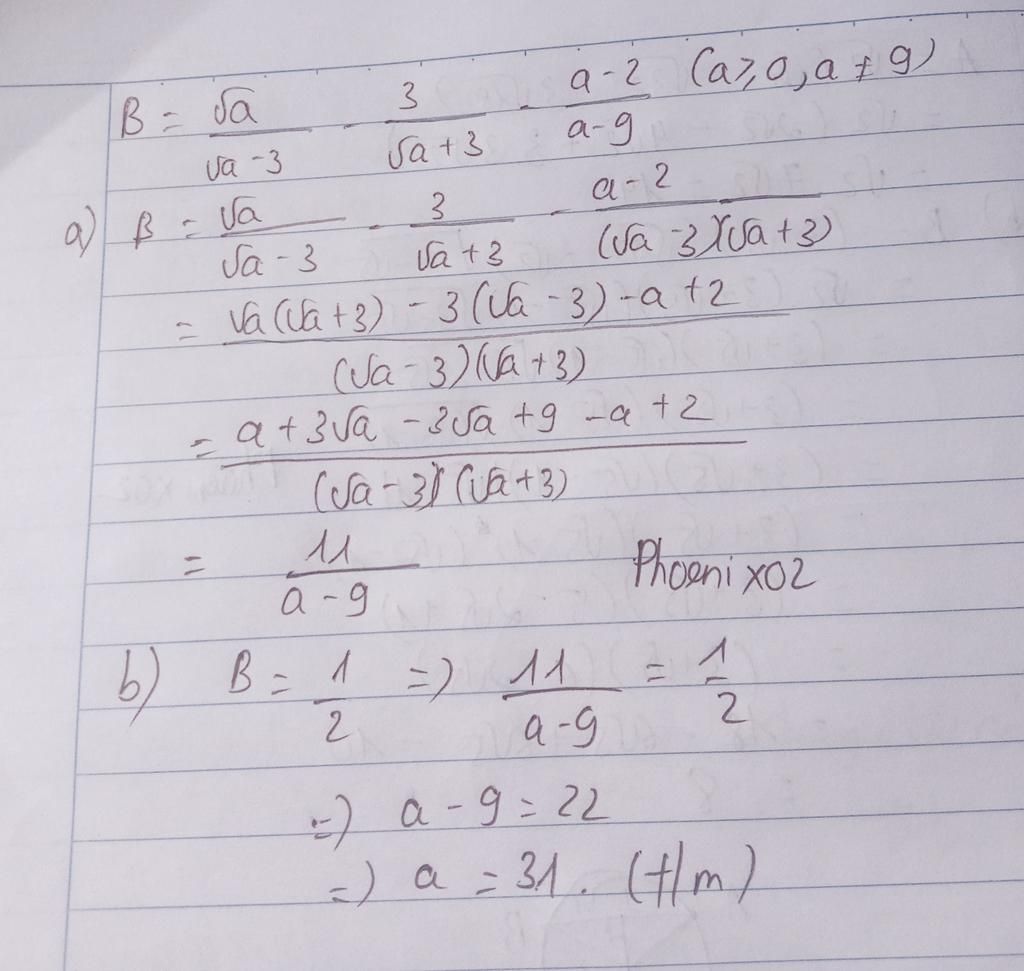 B = √a/(√a - 3) - 3/(√a + 3) - (a - 2)/(a - 9) (a ≥ 0, a ≠ 9)
a) B = √a/(√a - 3) - 3/(√a + 3) - (a - 2)/((√a - 3)(√a + 3))
= (√a(√a + 3) - 3(√a - 3) - a + 2)/((√a - 3)(√a + 3))
= (a + 3√a - 3√a + 9 - a + 2)/((√a - 3)(√a + 3))
= 11/(a - 9) Phoenix02
b) B = 1/2 => 11/(a - 9) = 1/2
=> a - 9 = 22
=> a = 31. (t/m)